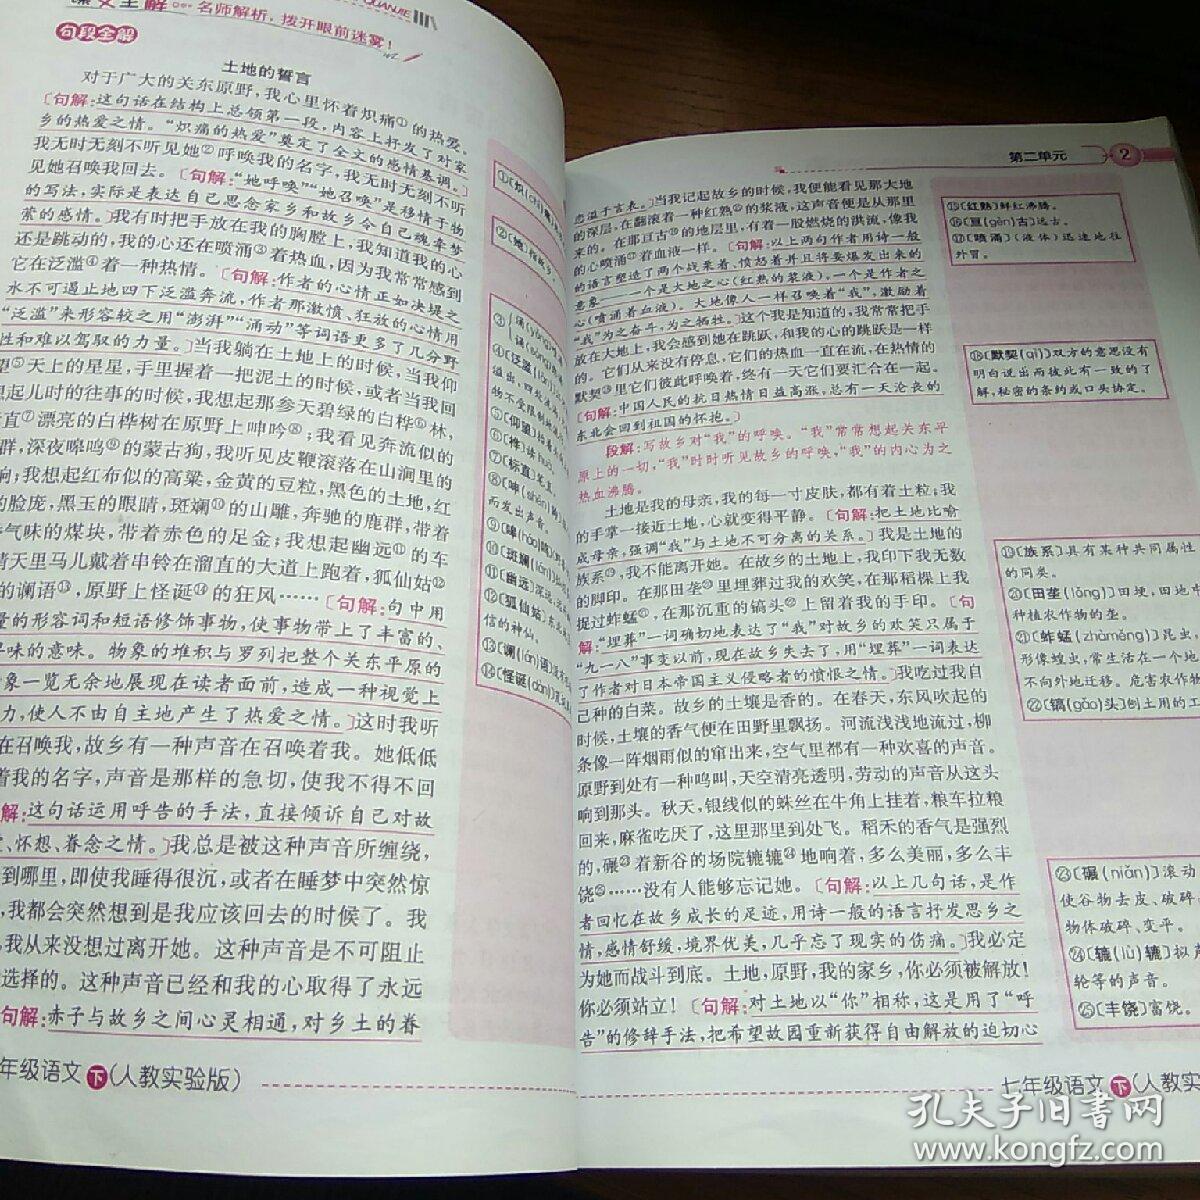 课文全解 名师解析，拨开眼前迷雾！
句段全解
土地的誓言
对于广大的关东原野，我心里怀着炽痛①的热爱。
〔句解：这句话在结构上总领第一段，内容上抒发了对家
乡的热爱之情。“炽痛的热爱”奠定了全文的感情基调。〕
我无时无刻不听见她②呼唤我的名字，我无时无刻不听
见她召唤我回去。〔句解：“她呼唤”“她召唤”是移情于物
的写法，实际是表达自己思念家乡和故乡令自己魂牵梦
萦的感情。〕我有时把手放在我的胸膛上，我知道我的心
还是跳动的，我的心还在喷涌③着热血，因为我常常感到
它在泛滥④着一种热情。〔句解：作者的心情正如决堤之
水不可遏止地四下泛滥奔流，作者那激愤、狂放的心情用
“泛滥”来形容较之用“澎湃”“涌动”等词语更多了几分野
性和难以驾驭的力量。〕当我躺在土地上的时候，当我仰
望⑤天上的星星，手里握着一把泥土的时候，或者当我回
想起儿时的往事的时候，我想起那参天碧绿的白桦⑥林，
直⑦漂亮的白桦树在原野上呻吟⑧；我看见奔流似的
群，深夜嗥鸣⑨的蒙古狗，我听见皮鞭滚落在山涧里的
响；我想起红布似的高粱，金黄的豆粒，黑色的土地，红
的脸庞，黑玉的眼睛，斑斓⑩的山雕，奔驰的鹿群，带着
气味的煤块，带着赤色的足金；我想起幽远⑪的车
晴天里马儿戴着串铃在溜直的大道上跑着，狐仙姑⑫
的谰语⑬，原野上怪诞⑭的狂风……〔句解：句中用
量的形容词和短语修饰事物，使事物带上了丰富的、
味的意味。物象的堆积与罗列把整个关东平原的
象一览无余地展现在读者面前，造成一种视觉上
力，使人不由自主地产生了热爱之情。〕这时我听
在召唤我，故乡有一种声音在召唤着我。她低低
着我的名字，声音是那样的急切，使我不得不回
解：这句话运用呼告的手法，直接倾诉自己对故
、怀想、眷念之情。〕我总是被这种声音所缠绕，
到哪里，即使我睡得很沉，或者在睡梦中突然惊
，我都会突然想到是我应该回去的时候了。我
，我从来没想过离开她。这种声音是不可阻止
选择的。这种声音已经和我的心取得了永远
句解：赤子与故乡之间心灵相通，对乡土的眷
年级语文下(人教实验版)
第二单元 2
恋溢于言表。〕当我记起故乡的时候，我便能看见那大地
的深层，在翻滚着一种红熟⑮的浆液，这声音便是从那里
来的。在那亘古⑯的地层里，有着一股燃烧的洪流，像我
的心喷涌⑰着血液一样。〔句解：以上两句作者用诗一般
的语言塑造了两个战栗着、愤怒着并且将要爆发出来的
意象——一个是大地之心(红熟的浆液)，一个是作者之
心(喷涌着血液)。大地像人一样召唤着“我”，激励着
“我”为之奋斗，为之牺牲。〕这个我是知道的，我常常把手
放在大地上，我会感到她在跳跃，和我的心的跳跃是一样
的。它们从来没有停息，它们的热血一直在流，在热情的
默契⑱里它们彼此呼唤着，终有一天它们要汇合在一起。
〔句解：中国人民的抗日热情日益高涨，总有一天沦丧的
东北会回到祖国的怀抱。〕
段解：写故乡对“我”的呼唤。“我”常常想起关东平
原上的一切，“我”时时听见故乡的呼唤，“我”的内心为之
热血沸腾。
土地是我的母亲，我的每一寸皮肤，都有着土粒；我
的手掌一接近土地，心就变得平静。〔句解：把土地比喻
成母亲，强调“我”与土地不可分离的关系。〕我是土地的
族系⑲，我不能离开她。在故乡的土地上，我印下我无数
的脚印。在那田垄⑳里埋葬过我的欢笑，在那稻棵上我
捉过蚱蜢㉑，在那沉重的镐头㉒上留着我的手印。〔句
解：“埋葬”一词确切地表达了“我”对故乡的欢笑只属于
“九一八”事变以前，现在故乡失去了，用“埋葬”一词表达
了作者对日本帝国主义侵略者的愤恨之情。〕我吃过我自
己种的白菜。故乡的土壤是香的。在春天，东风吹起的
时候，土壤的香气便在田野里飘扬。河流浅浅地流过，柳
条像一阵烟雨似的窜出来，空气里都有一种欢喜的声音。
原野到处有一种鸣叫，天空清亮透明，劳动的声音从这头
响到那头。秋天，银线似的蛛丝在牛角上挂着，粮车拉粮
回来，麻雀吃厌了，这里那里到处飞。稻禾的香气是强烈
的，碾㉓着新谷的场院辘辘㉔地响着，多么美丽，多么丰
饶㉕……没有人能够忘记她。〔句解：以上几句话，是作
者回忆在故乡成长的足迹，用诗一般的语言抒发思乡之
情，感情舒缓，境界优美，几乎忘了现实的伤痛。〕我必定
为她而战斗到底。土地，原野，我的家乡，你必须被解放！
你必须站立！〔句解：对土地以“你”相称，这是用了“呼
告”的修辞手法，把希望故园重新获得自由解放的迫切心
⑮〔红熟〕鲜红沸腾。
⑯〔亘(gèn)古〕远古。
⑰〔喷涌〕(液体)迅速地往
外冒。
⑱〔默契(qì)〕双方的意思没有
明白说出而彼此有一致的了
解，秘密的条约或口头协定。
⑲〔族系〕具有某种共同属性
的同类。
⑳〔田垄(lǒng)〕田埂，田地中
种植农作物的垄。
㉑〔蚱蜢(zhàměng)〕昆虫，
形像蝗虫，常生活在一个地
不向外地迁移。危害农作物
㉒〔镐(gǎo)头〕刨土用的工
㉓〔碾(niǎn)〕滚动
使谷物去皮、破碎，
物体破碎、变平。
㉔〔辘(lù)辘〕拟声
轮等的声音。
㉕〔丰饶〕富饶。
七年级语文下(人教实
孔夫子旧书网
www.kongfz.com